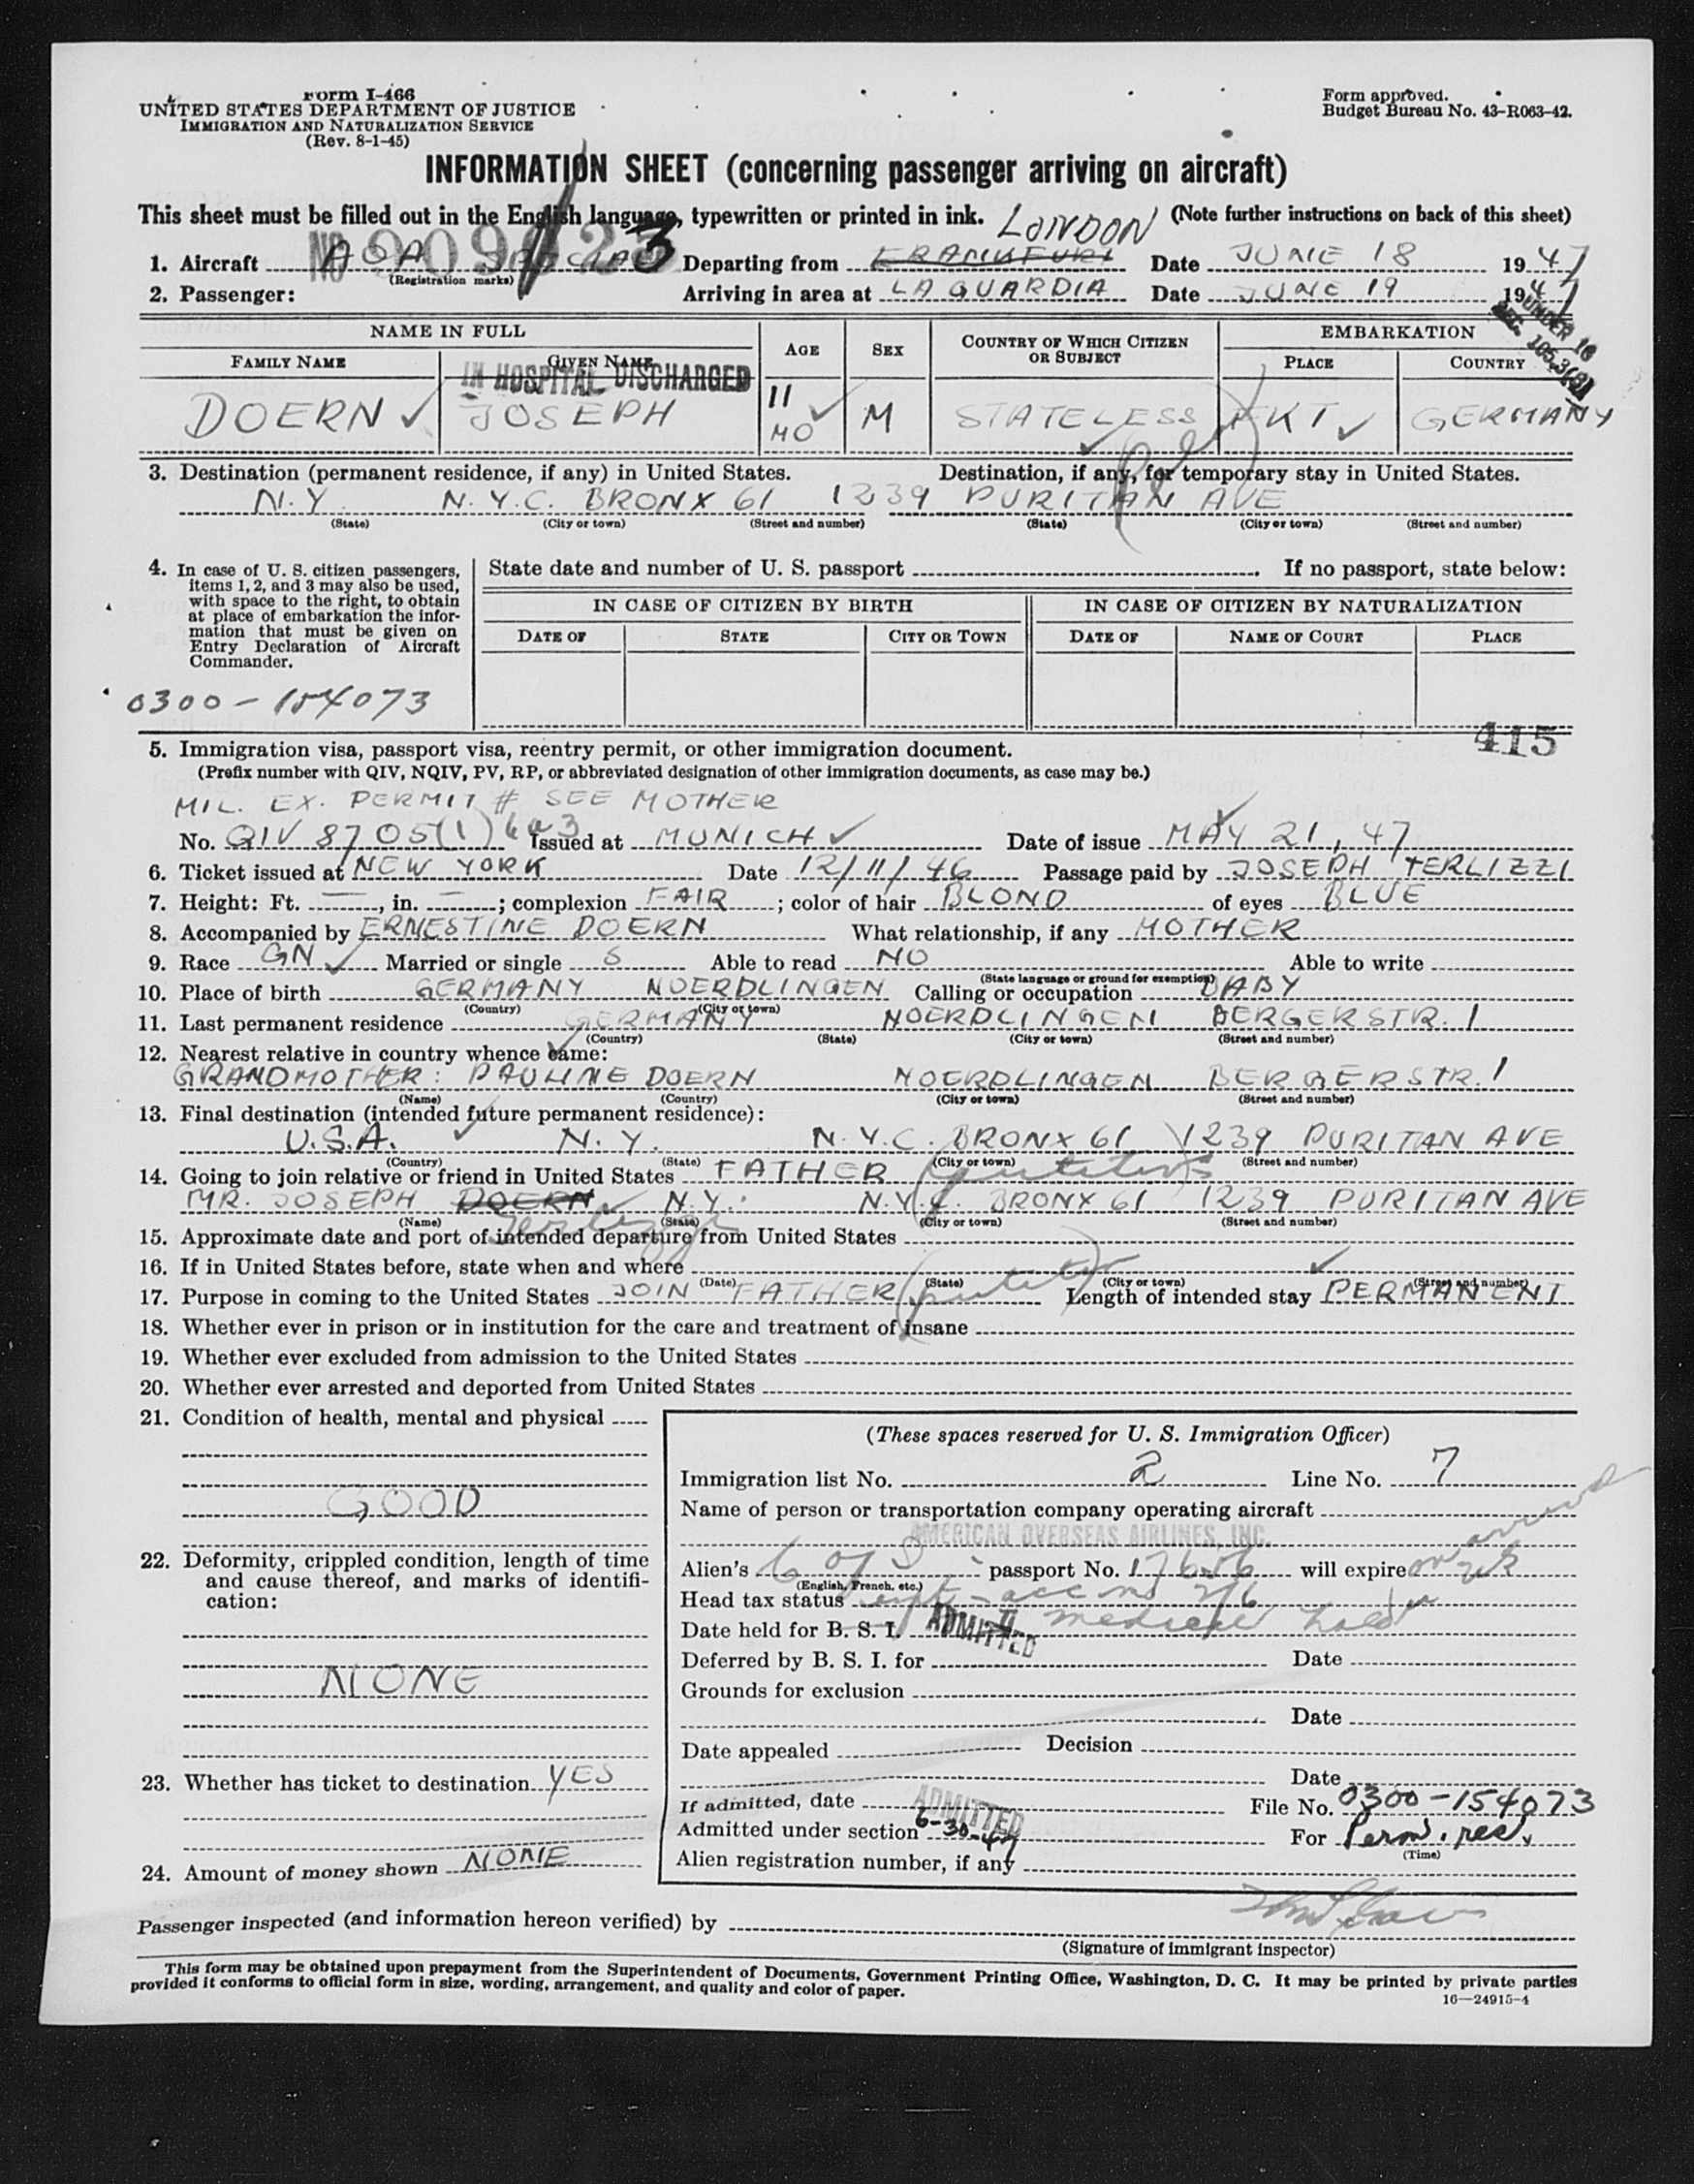 Form I-466
UNITED STATES DEPARTMENT OF JUSTICE
IMMIGRATION AND NATURALIZATION SERVICE
(Rev. 8-1-45)
Form approved.
Budget Bureau No. 43-R063-42.
INFORMATION SHEET (concerning passenger arriving on aircraft)
This sheet must be filled out in the English language, typewritten or printed in ink. (Note further instructions on back of this sheet)
LONDON
1. Aircraft AOA Departing from FRANKFURT Date JUNE 18 1947
(Registration marks)
2. Passenger: Arriving in area at LA GUARDIA Date JUNE 19 1947
UNDER 16
SEC. 105.3(B)
NAME IN FULL AGE SEX COUNTRY OF WHICH CITIZEN OR SUBJECT EMBARKATION
FAMILY NAME GIVEN NAME PLACE COUNTRY
IN HOSPITAL DISCHARGED
DOERN JOSEPH 11 MO M STATELESS FKT GERMANY
3. Destination (permanent residence, if any) in United States. Destination, if any, for temporary stay in United States.
N.Y. N.Y.C. BRONX 61 1239 PURITAN AVE
(State) (City or town) (Street and number) (State) (City or town) (Street and number)
4. In case of U. S. citizen passengers, items 1, 2, and 3 may also be used, with space to the right, to obtain at place of embarkation the information that must be given on Entry Declaration of Aircraft Commander.
State date and number of U. S. passport If no passport, state below:
IN CASE OF CITIZEN BY BIRTH IN CASE OF CITIZEN BY NATURALIZATION
DATE OF STATE CITY OR TOWN DATE OF NAME OF COURT PLACE
0300-154073
415
5. Immigration visa, passport visa, reentry permit, or other immigration document.
(Prefix number with QIV, NQIV, PV, RP, or abbreviated designation of other immigration documents, as case may be.)
MIL. EX. PERMIT # SEE MOTHER
No. QIV 8705(1) 6a3 Issued at MUNICH Date of issue MAY 21, 47
6. Ticket issued at NEW YORK Date 12/11/46 Passage paid by JOSEPH TERLIZZI
7. Height: Ft. —, in. —; complexion FAIR; color of hair BLOND of eyes BLUE
8. Accompanied by ERNESTINE DOERN What relationship, if any MOTHER
9. Race GN Married or single S Able to read NO Able to write
(State language or ground for exemption)
10. Place of birth GERMANY NOERDLINGEN Calling or occupation BABY
(Country) (City or town)
11. Last permanent residence GERMANY NOERDLINGEN BERGERSTR. 1
(Country) (State) (City or town) (Street and number)
12. Nearest relative in country whence came:
GRANDMOTHER: PAULINE DOERN NOERDLINGEN BERGERSTR. 1
(Name) (Country) (City or town) (Street and number)
13. Final destination (intended future permanent residence):
U.S.A. N.Y. N.Y.C. BRONX 61 1239 PURITAN AVE
(Country) (State) (City or town) (Street and number)
14. Going to join relative or friend in United States FATHER (putative)
MR. JOSEPH DOERN N.Y. N.Y.C. BRONX 61 1239 PURITAN AVE
(Name) (State) (City or town) (Street and number)
15. Approximate date and port of intended departure from United States
16. If in United States before, state when and where
(Date) (State) (City or town) (Street and number)
17. Purpose in coming to the United States JOIN FATHER (putative) Length of intended stay PERMANENT
18. Whether ever in prison or in institution for the care and treatment of insane
19. Whether ever excluded from admission to the United States
20. Whether ever arrested and deported from United States
21. Condition of health, mental and physical
GOOD
22. Deformity, crippled condition, length of time and cause thereof, and marks of identification:
NONE
23. Whether has ticket to destination YES
24. Amount of money shown NONE
(These spaces reserved for U. S. Immigration Officer)
Immigration list No. 2 Line No. 7
Name of person or transportation company operating aircraft
AMERICAN OVERSEAS AIRLINES, INC.
Alien's passport No. 17656 will expire
(English, French, etc.)
Head tax status
Date held for B. S. I. ADMITTED medical hold
Deferred by B. S. I. for Date
Grounds for exclusion
Date
Date appealed Decision
Date
If admitted, date ADMITTED File No. 0300-154073
Admitted under section 6-30-47 For Perm. res.
(Time)
Alien registration number, if any
Passenger inspected (and information hereon verified) by
(Signature of immigrant inspector)
This form may be obtained upon prepayment from the Superintendent of Documents, Government Printing Office, Washington, D. C. It may be printed by private parties
provided it conforms to official form in size, wording, arrangement, and quality and color of paper.
16—24915-4